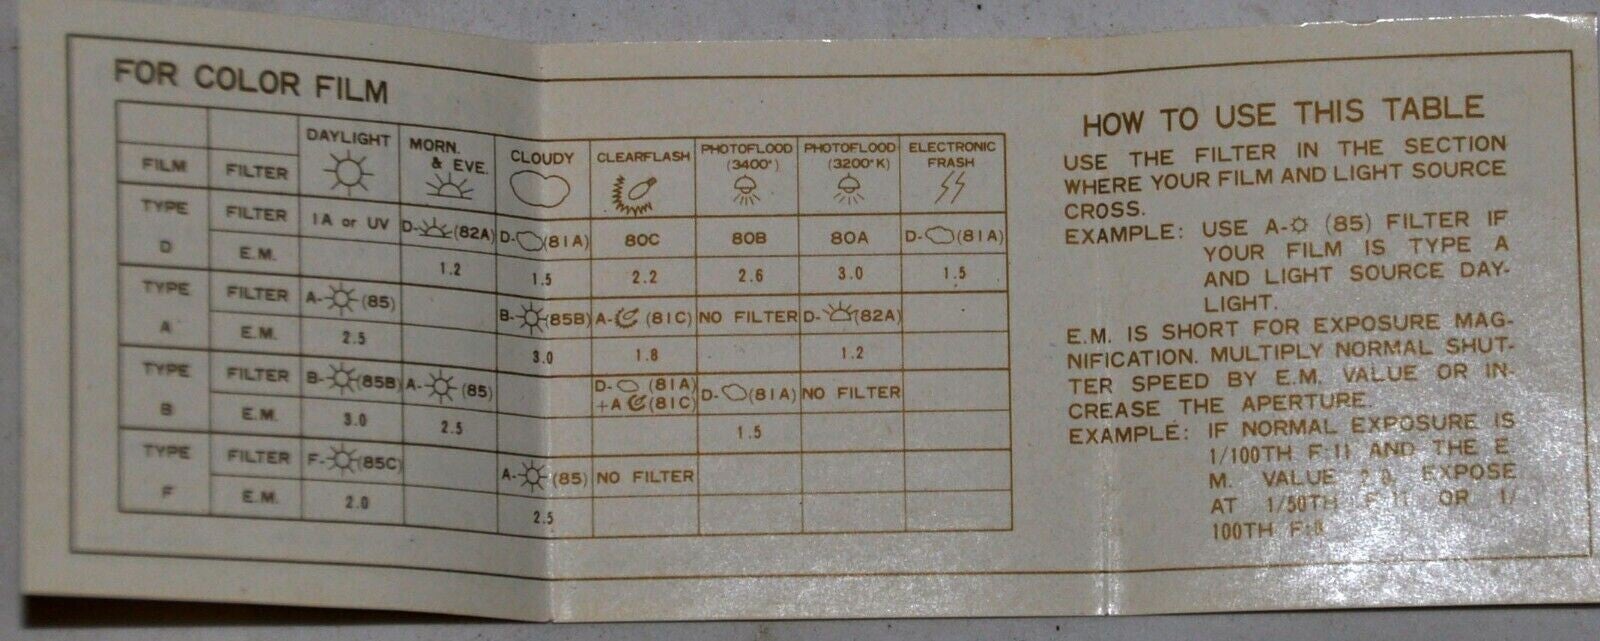 FOR COLOR FILM
FILM FILTER DAYLIGHT MORN. & EVE. CLOUDY CLEARFLASH PHOTOFLOOD (3400°) PHOTOFLOOD (3200°K) ELECTRONIC FRASH
TYPE D FILTER 1A or UV D-(82A) D-(81A) 80C 80B 80A D-(81A)
E.M. 1.2 1.5 2.2 2.6 3.0 1.5
TYPE A FILTER A-(85) B-(85B) A-(81C) NO FILTER D-(82A)
E.M. 2.5 3.0 1.8 1.2
TYPE B FILTER B-(85B) A-(85) D-(81A) +A(81C) D-(81A) NO FILTER
E.M. 3.0 2.5 1.5
TYPE F FILTER F-(85C) A-(85) NO FILTER
E.M. 2.0 2.5
HOW TO USE THIS TABLE
USE THE FILTER IN THE SECTION
WHERE YOUR FILM AND LIGHT SOURCE
CROSS.
EXAMPLE: USE A-(85) FILTER IF
YOUR FILM IS TYPE A
AND LIGHT SOURCE DAY-
LIGHT.
E.M. IS SHORT FOR EXPOSURE MAG-
NIFICATION. MULTIPLY NORMAL SHUT-
TER SPEED BY E.M. VALUE OR IN-
CREASE THE APERTURE.
EXAMPLE: IF NORMAL EXPOSURE IS
1/100TH F:11 AND THE E
M. VALUE 2.0, EXPOSE
AT 1/50TH F:11 OR 1/
100TH F:8